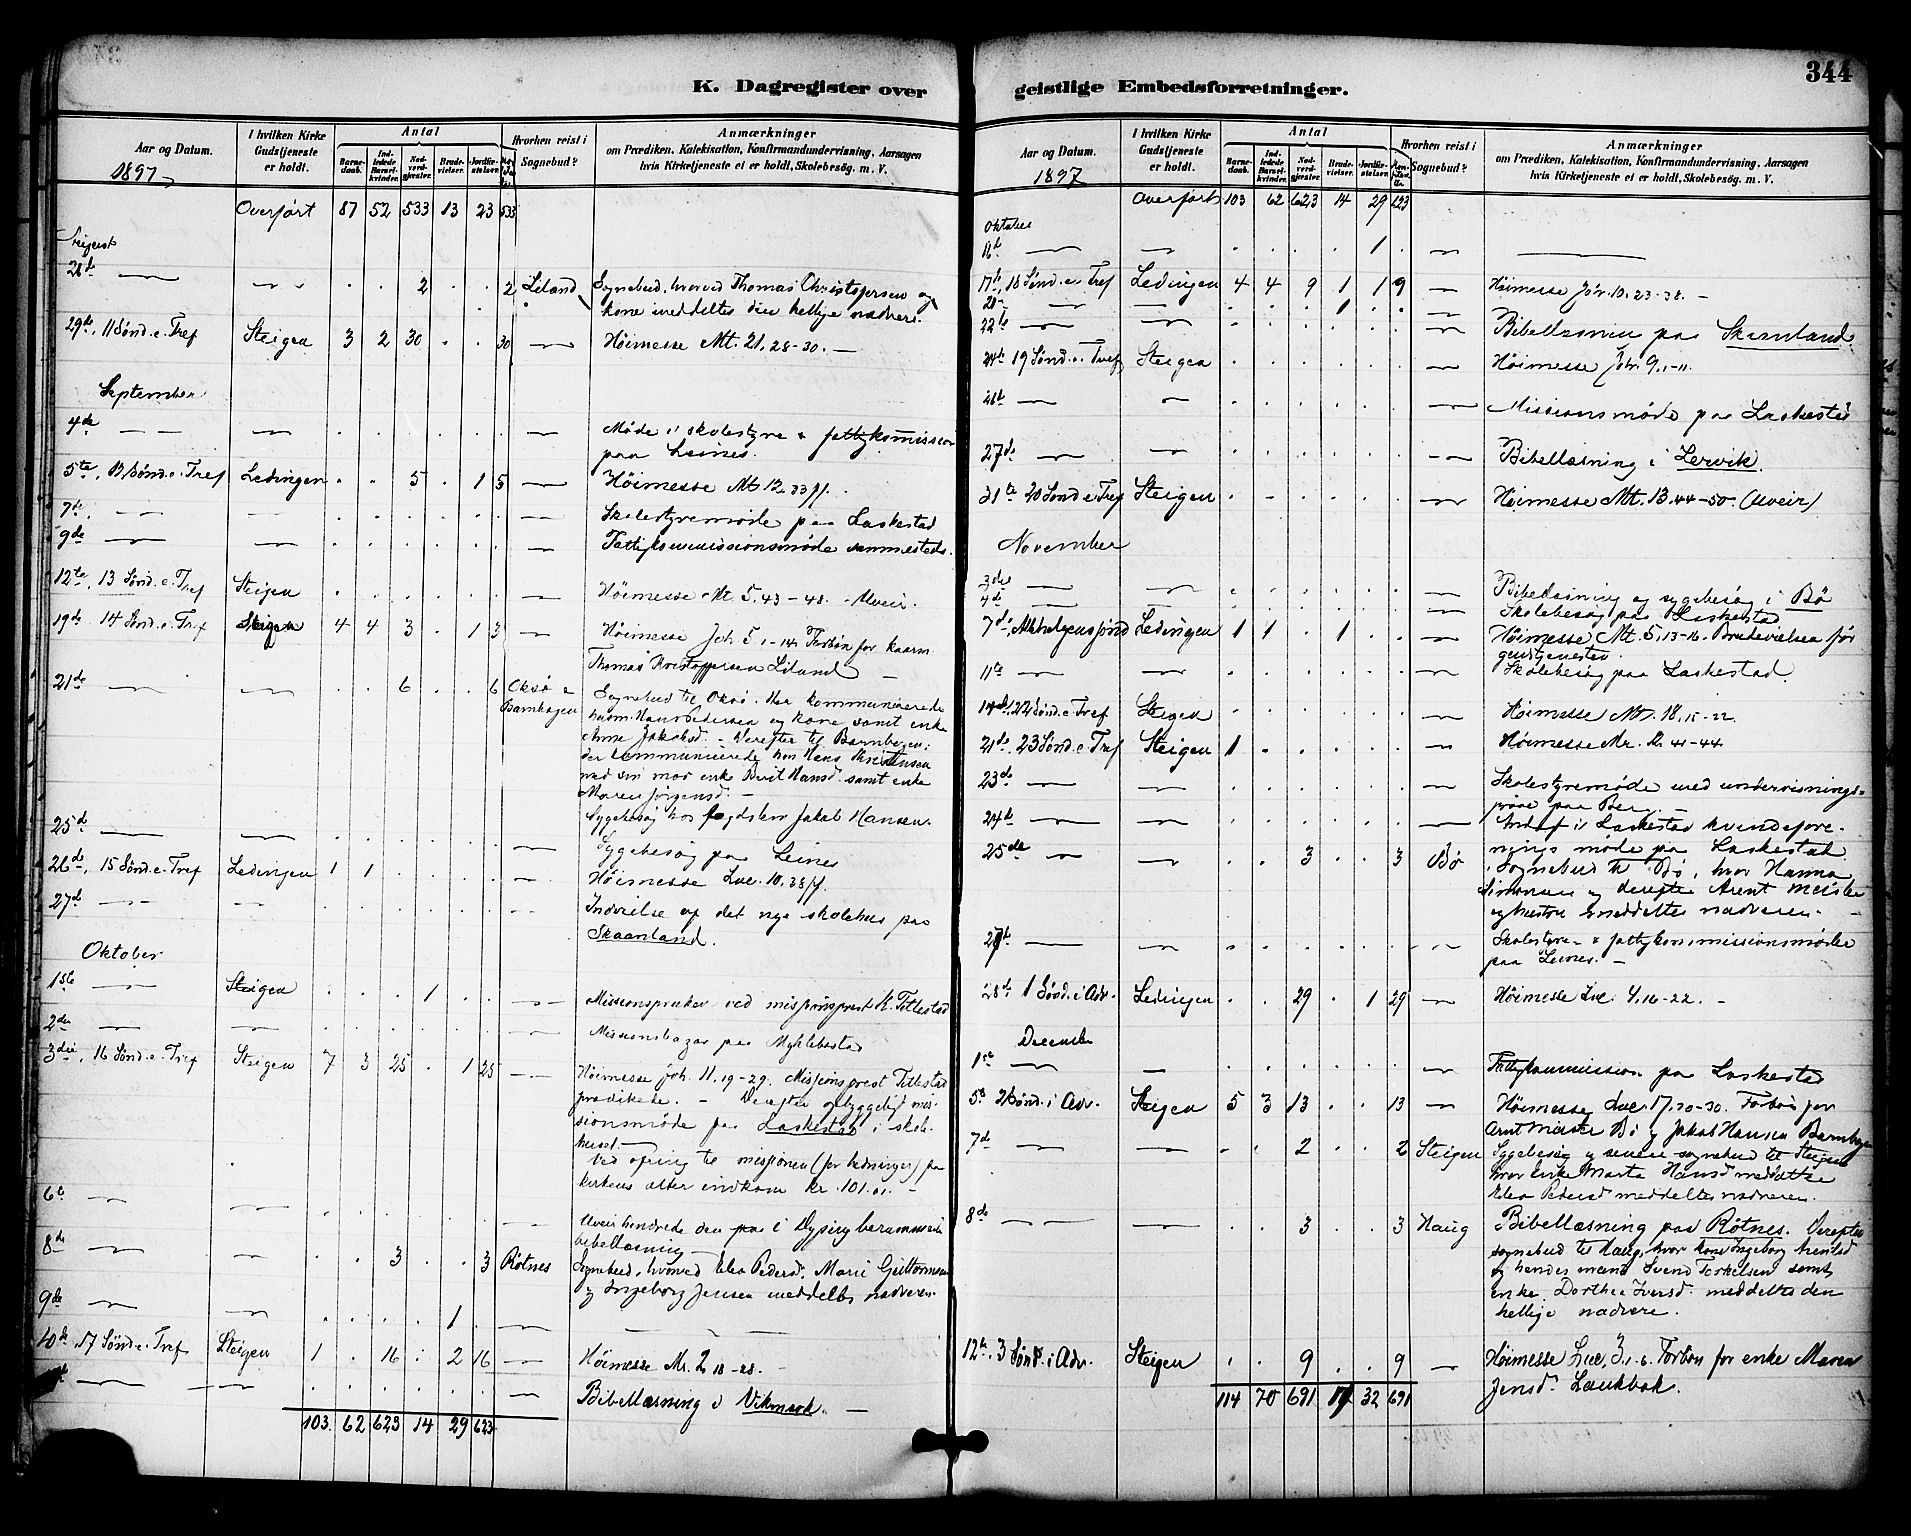 344
K. Dagregister over
geistlige Embedsforretninger.
Aar og Datum.
1897
I hvilken Kirke Gudstjeneste er holdt.
Antal
Barne-daab.
Ind-ledede Barsel-kvinder.
Nad-verd-gjester.
Brude-vielser.
Jordfæ-stelser.
Hvorhen reist i Sognebud?
Anmærkninger
om Prædiken, Katekisation, Konfirmandundervisning, Aarsagen
hvis Kirketjeneste ei er holdt, Skolebesøg. m. V.
Overført 87 52 533 13 23 533
August
28de 2 2 Leland Sognebud, hvorved Thomas Christofersen og
kone meddeltes den hellige nadvere.
29de, 11 Sønd. e. Tref Steigen 3 2 30 30 Høimesse Mt. 21. 28-30.
September
4de Møde i skolestyre & fattigkommission
paa Leines.
5te, 12 Sønd. e. Tref Ledingen 5 1 5 Høimesse Mt. 12. 33 ff.
7de Skolestyremøde paa Laskestad
9de Fattigkommissionsmøde sammesteds.
12te, 13 Sønd. e. Tref Steigen Høimesse Mt. 5. 43-48. Uveir.
19de 14 Sønd. e. Tref Steigen 4 4 3 1 3 Høimesse Joh. 5. 1-14. Forbøn for kaarm.
Thomas Kristoffersen Leland
21de 6 6 Oksø & Barnhagen Sognebud til Oksø. Her kommunicerede
kaarm. Hans Pedersen og kone samt enke
Anne Jakobsd. - Derefter til Barnhagen;
der kommunicerede hos Hans Kristensen
med sin mor enke Berit Hansd. samt enke
Maren Jørgensd. -
Sygebesøg hos fogdslev Jakob Hansen.
25de Sygebesøg paa Leines
26de, 15 Sønd. e. Tref Ledingen 1 1 Høimesse Luc. 10. 38 ff.
27de Indvielse af det nye skolehus paa
Skaanland.
Oktober
1ste Steigen 1 Missionspræken ved missionsprest K. Titlestad
2den Missionsbazar paa Myklebostad
3die, 16 Sønd. e. Tref Steigen 7 3 25 1 25 Høimesse Joh. 11. 19-29. Missionsprest Titlestad
prædikede. - Derefter opbyggeligt mis-
sionsmøde paa Laskestad i skole-
huset. -
Ved ofring til missionen (for hedninger) paa
kirkens alter indkom kr. 101.01. -
6te Uveir hindrede den paa i Dyping berammede
bibellæsning
8de 3 3 Røtnes Sognebud, hvorved Elea Pedersd. Marie Guttormsen
og Ingeborg Jensen meddeltes nadveren.
9de 1
10de, 17 Sønd. e. Tref Steigen 1 16 2 16 Høimesse Mr. 2. 18-28.
Bibellæsning i Vikmark.
103. 62 623 14 29 623
Aar og Datum.
1897
I hvilken Kirke Gudstjeneste er holdt.
Antal
Barne-daab.
Ind-ledede Barsel-kvinder.
Nad-verd-gjester.
Brude-vielser.
Jordfæ-stelser.
Hvorhen reist i Sognebud?
Anmærkninger
om Prædiken, Katekisation, Konfirmandundervisning, Aarsagen
hvis Kirketjeneste ei er holdt, Skolebesøg. m. V.
Overført 103 62 623 14 29 623
Oktober
16de 1
17de, 18 Sønd. e. Tref Ledingen 4 4 9 1 1 9 Høimesse Joh. 10. 23-38. -
20de 1
22de Bibellæsning paa Skaanland.
24de 19 Sønd. e. Tref Steigen Høimesse Joh. 9. 1-11.
26de Missionsmøde paa Laskestad
27de Bibellæsning i Lervik.
31te 20 Sønd e Tref Steigen Høimesse Mt. 13. 44-50. (Uveir)
November
3die Bibellæsning og sygebesøg i Bø
4de Skolebesøg paa Laskestad
7de, Allehelgensønd Ledingen 1 1 1 Høimesse Mt. 5. 13-16. Brudevielsen før
gudstjenesten.
11te Skolebesøg paa Laskestad.
14de, 22 Sønd. e. Tref Steigen Høimesse Mt. 18. 15-22.
21de, 23 Sønd. e. Tref Steigen 1 Høimesse Mr. 12. 41-44.
23de Skolestyremøde med undervisnings-
prøve paa Berg. -
24de Andagt i Laskestad kvindefore-
nings møde paa Laskestad
25de 3 3 Bø Sognebud til Bø, hvor Hanna
Simonsen og derefter Arent Meisler
og hustru meddeltes nadveren. -
27de Skolestyre- & fattigkommissionsmøde
paa Leines. -
28de, 1 Sønd. i Adv. Ledingen 29 1 29 Høimesse Luc. 4. 16-22. -
December
1ste Fattigkommission paa Laskestad
5te 2 Sønd. i Adv. Steigen 5 3 13 13 Høimesse Luc. 17. 20-30. Forbøn for
Arnt Meisler Bø og Jakob Hansen Barnhagen
7de 2 2 Steigen Sygebesøg og senere sognebud til Steigen
hvor enke Marta Hansd meddeltes
Elea Pedersd meddeltes nadveren.
8de 3 3 Haug Bibellæsning paa Røtnes. Derefter
sognebud til Haug, hvor kone Ingeborg
og hendes mand Svend Torkelsen samt
enke Dorthea Iversd. meddeltes den
hellige nadvere.
12te, 3 Sønd. i Adv. Steigen 9 9 Høimesse Luc. 3. 1-6. Forbøn for enke Maren
Jensd. Laukbak.
114 70 691 17 32 691